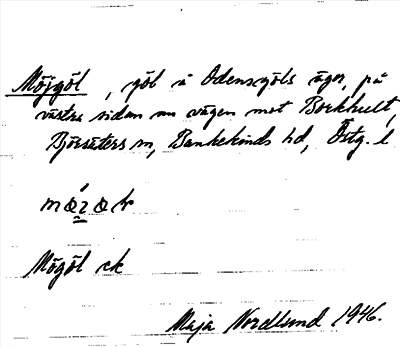 Möjgöl, göl å Odensgöls ägor, på
västra sidan om vägen mot Borkhult,
Björsäters sn, Bankekinds hd, Östg. l
Mögöl ek
Maja Nordlund 1946.